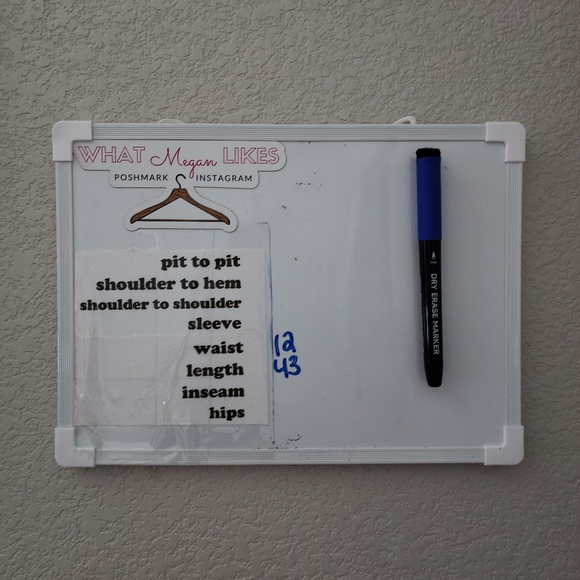 WHAT Megan LIKES
POSHMARK INSTAGRAM
pit to pit
shoulder to hem
shoulder to shoulder
sleeve
waist 12
length 43
inseam
hips
DRY ERASE MARKER